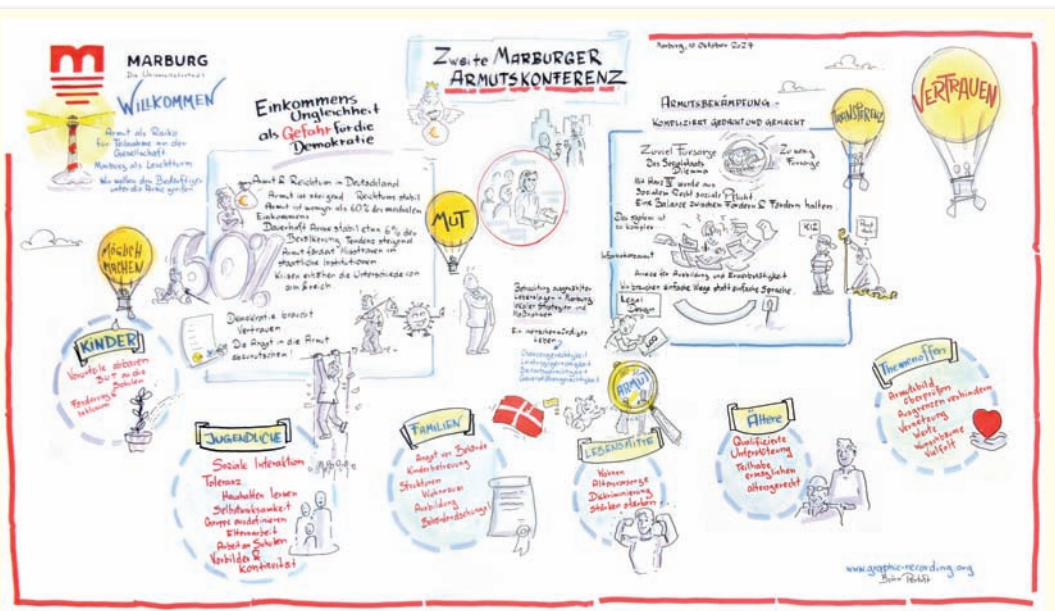 MARBURG
Die Universitätsstadt
WILLKOMMEN
Armut als Risiko
für Teilnahme an der
Gesellschaft
Marburg als Leuchtturm
Wir wollen den Bedürftigen
unter die Arme greifen
Zweite MARBURGER
ARMUTSKONFERENZ
Marburg, 10. Oktober 2024
Einkommens
Ungleichheit
als Gefahr für die
Demokratie
Armut & Reichtum in Deutschland
Armut ist steigend Reichtum stabil
Armut ist weniger als 60% des medialen
Einkommens
Dauerhaft Arme stabil etwa 6% der
Bevölkerung Tendenz steigend
Armut fördert Misstrauen in
staatliche Institutionen
Krisen erhöhen die Unterschiede von
arm & reich
60%
Demokratie braucht
Vertrauen
Die Angst in die Armut
abzurutschen!
MUT
MÖGLICH
MACHEN
ARMUTSBEKÄMPFUNG -
KOMPLIZIERT GEDACHT UND GEMACHT
Zuviel Fürsorge
Das Sozialstaats
Dilemma
Zu wenig
Fürsorge
Mit Harz IV wurde aus
Sozialem Recht soziale Pflicht.
Eine Balance zwischen Fordern & Fördern halten.
Das System ist
zu komplex...
Anreize für Ausbildung und Erwerbstätigkeit
Wir brauchen einfache Wege statt einfache Sprache.
Legal
Design
TRANSFERENZ
VERTRAUEN
Betrachtung ausgewählter
Lebenslagen in Marburg
lokaler Strategien und
Maßnahmen
Ein menschenwürdiges
Leben
Chancengerechtigkeit
Leistungsgerechtigkeit
Bedarfsgerechtigkeit
Generationengerechtigkeit
ARMUT
KINDER
Vorurteile abbauen
BUT an die
Schulen
Förderung &
Inklusion
JUGENDLICHE
Soziale Interaktion
Toleranz
Haushalten lernen
Selbstwirksamkeit
Gruppe ausdefinieren
Elternarbeit
Arbeit an Schulen
Vorbilder &
Kontinuität
FAMILIEN
Angst vor Behörde
Kinderbetreuung
Strukturen
Wohnraum
Ausbildung
Behördendschungel
LEBENSMITTE
Wohnen
Altersvorsorge
Diskriminierung
Stärken stärken
Ältere
Qualifizierte
Unterstützung
Teilhabe
ermöglichen
altersgerecht
Themenoffen
Armutsbild
überprüfen
Ausgrenzen verhindern
Vernetzung
Werte
Vielfalt
www.graphic-recording.org